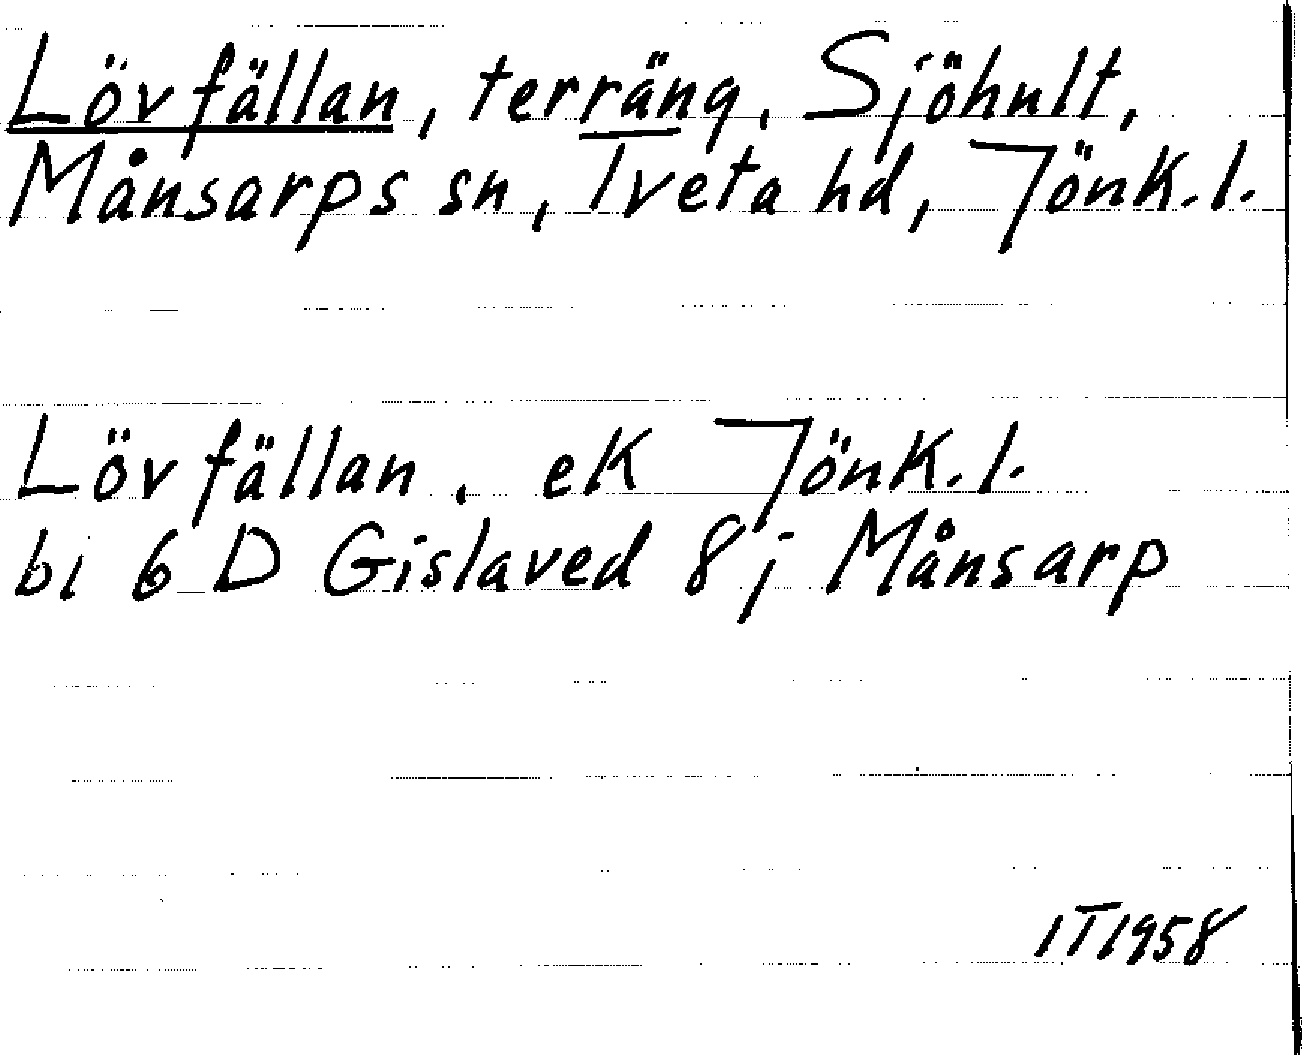 Lövfällan, terräng, Sjöhult,
Månsarps sn, Tveta hd, Jönk.l.
Lövfällan, ek Jönk.l.
bl 6 D Gislaved 8 j Månsarp
IT1958